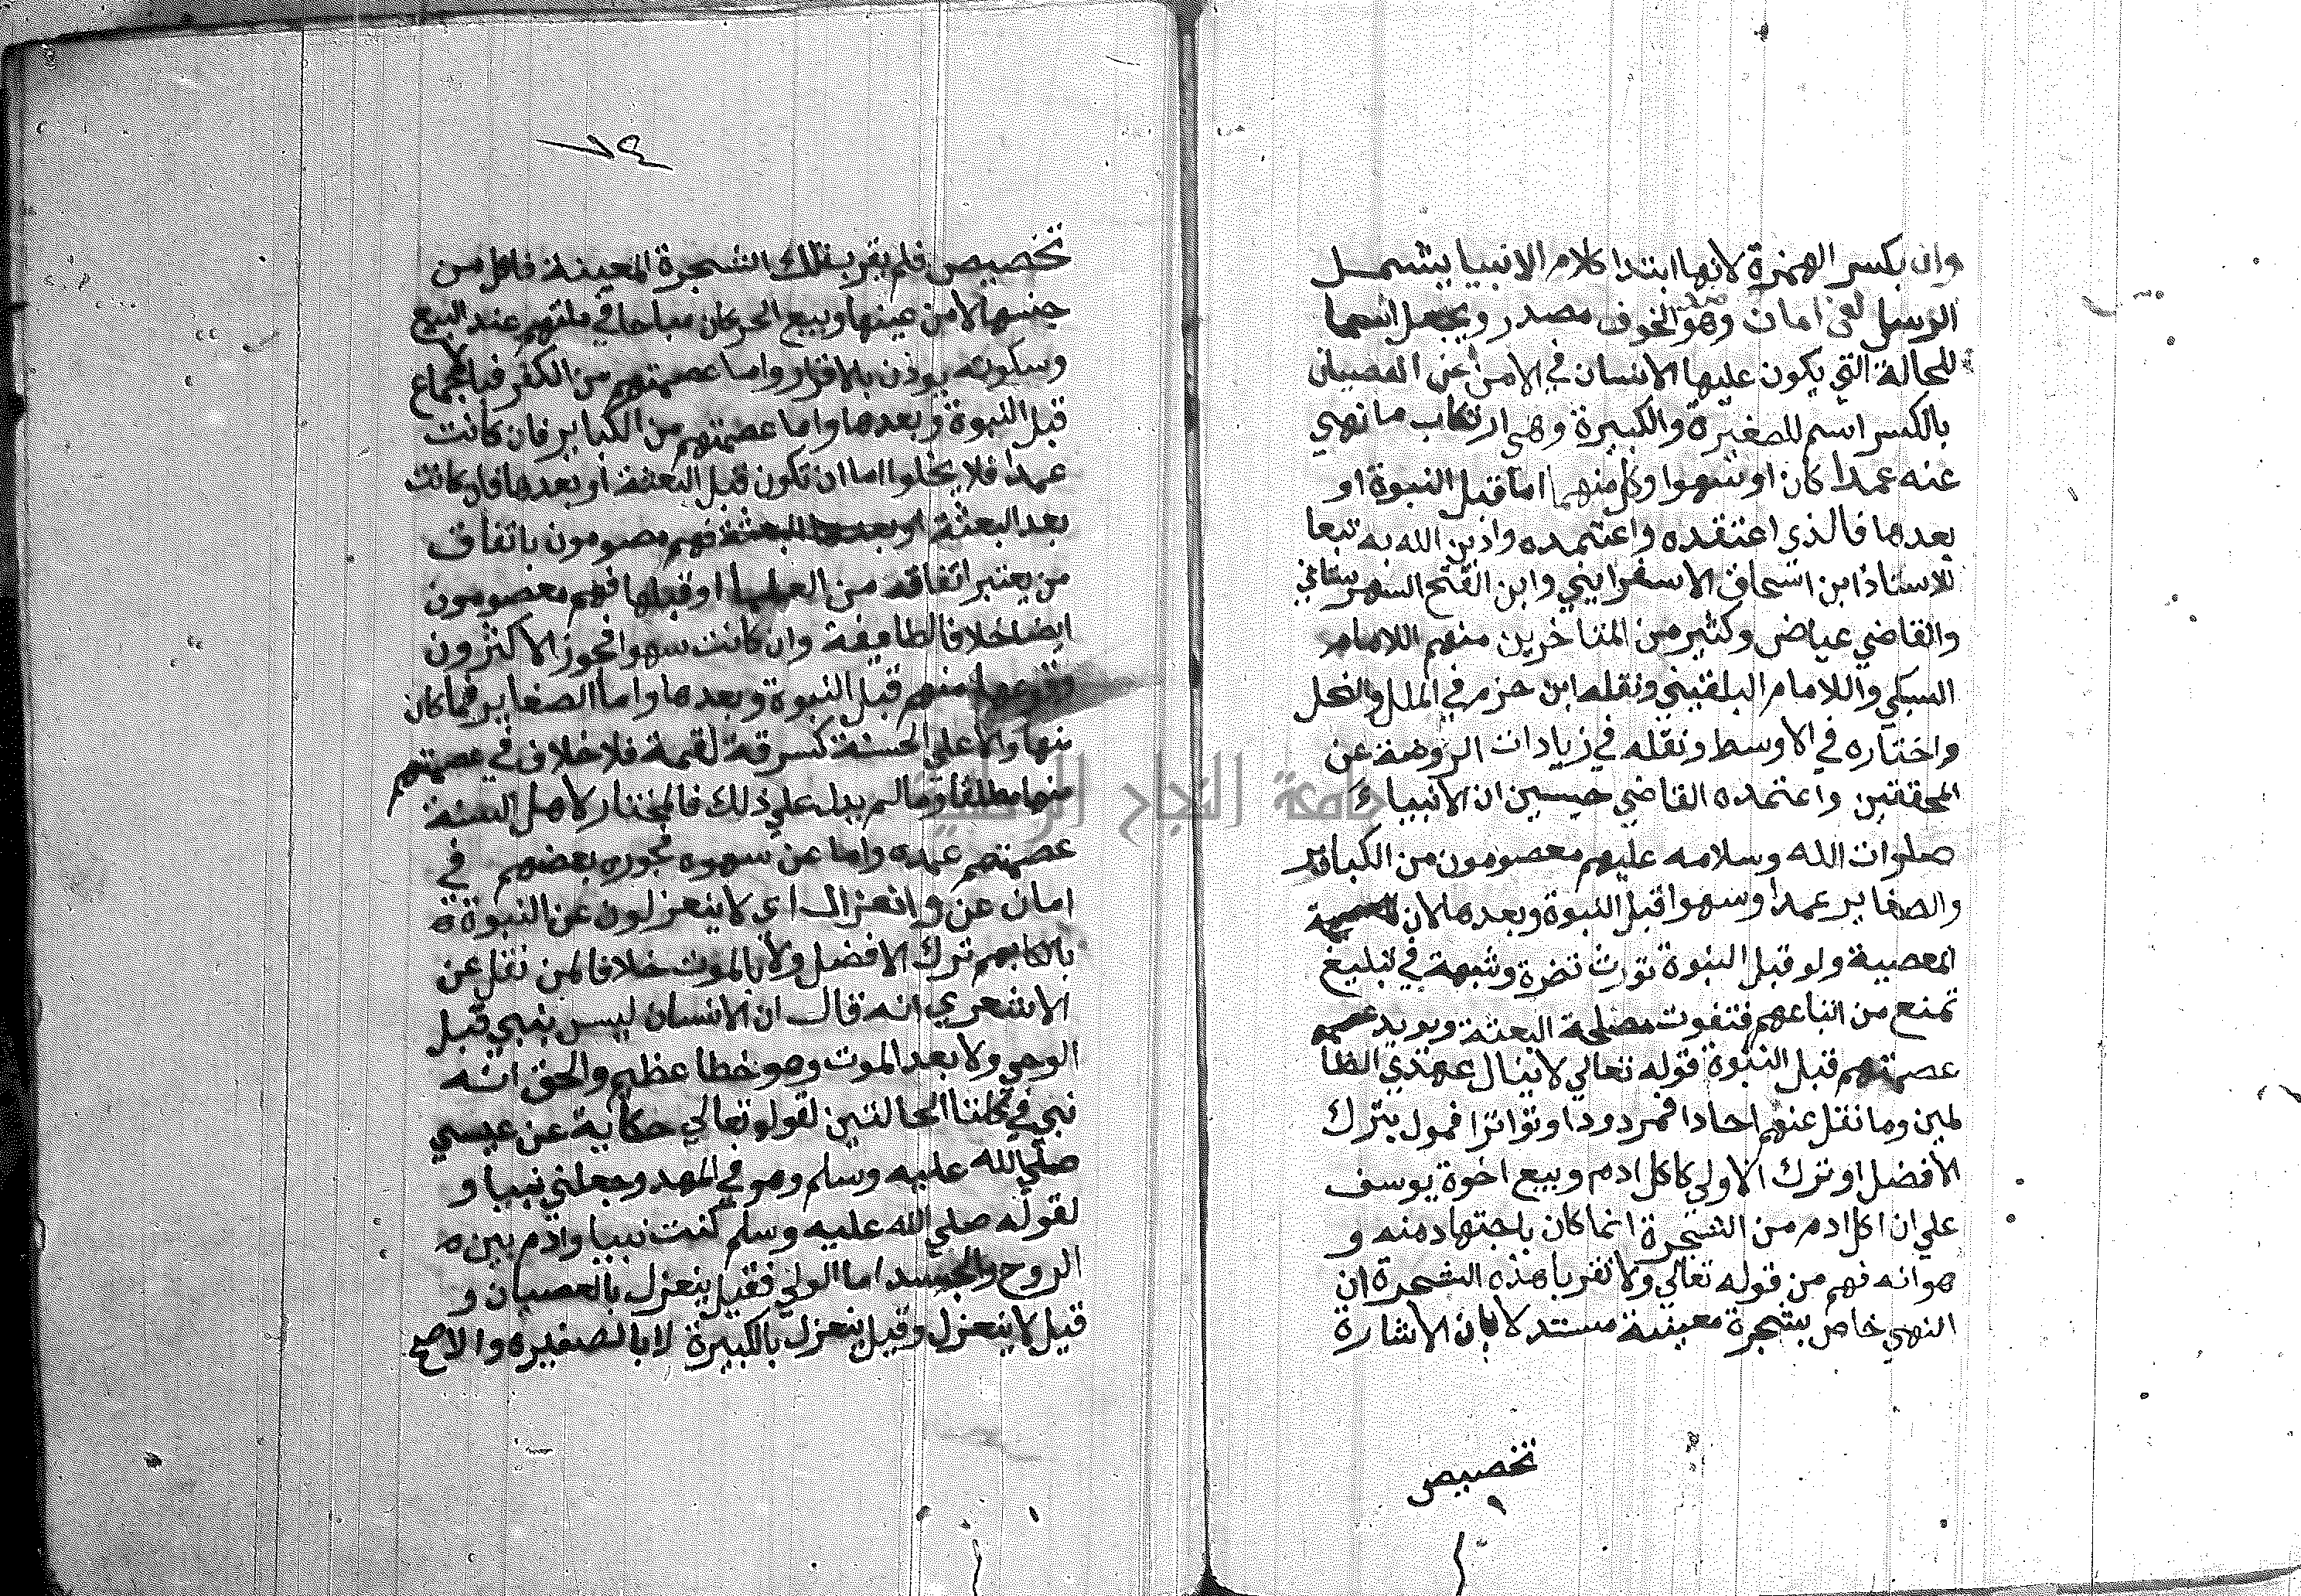 وان بكسر الهمزة لانها ابتدا كلام الانبيا يشمل
الرسل لفى امان وهو ضد الخوف مصدر ويجعل اسما
للحالة التي يكون عليها الانسان في الامن عن العصيان
بالكسر اسم للصغيرة والكبيرة وهي ارتكاب ما نهي
عنه عمدا كان او سهوا وكل منهما اما قبل النبوة او
بعدها فالذي اعتقده واعتمده وادين الله به تبعا
للاستاذ ابن اسحاق الاسفرايني وابن الفتح الشهرستاني
والقاضي عياض وكثير من المتاخرين منهم اللامام
السبكي واللامام البلقيني ونقله ابن حزم في الملل والنحل
واختاره في الاوسط ونقله في زيادات الروضة عن
المحققين واعتمده القاضي حسين ان الانبياء
صلوات الله وسلامه عليهم معصومون من الكبائر
والصغاير عمدا وسهوا قبل النبوة وبعدها لان
المعصية ولو قبل النبوة تورث نضرة وشبهة في تبليغ
تمنع من اتباعهم فتفوت مصلحة البعثة ويويد
عصمتهم قبل النبوة قوله تعالي لا ينال عهدي الظا
لمين وما نقل عنهم احادا فمردود او تواترا فمول بترك
الافضل او ترك الاولي كاكل ادم وبيع اخوة يوسف
علي ان اكل ادم من الشجرة انما كان باجتهاد منه و
هو انه فهم من قوله تعالي ولا تقربا هذه الشجرة ان
النهي خاص بشجرة معينة مستدلا بان الاشارة
تخصيص
٧٤
تخصيص فلم يقرب تلك الشجرة المعينة فاكل من
جنسها لا من عينها وبيع الحر كان مباحا في ملتهم عند البيع
وسكوته يوذن بالاقرار واما عصمتهم من الكفر فبالاجماع
قبل النبوة وبعدها واما عصمتهم من الكباير فان كانت
عمدا فلا يخلوا اما ان تكون قبل البعثة او بعدها فان كانت
بعد البعثة فهم مصومون باتفاق
من يعتبر اتفاقه من العلما او قبلها فهم معصومون
ايضا خلافا لطايفة وان كانت سهوا فجوز الاكثرون
وقوعها منهم قبل النبوة وبعدها واما الصغاير فما كان
منها دالا علي الخسة كسرقة لقمة فلا خلاف في عصمتهم
منها مطلقا وما لم يدل علي ذلك فالمختار لاهل السنة
عصمتهم عمده واما عن سهوه فجوره بعضهم في
امان عن و انعزال اي لا ينعزلون عن النبوة ة
بالكابهم ترك الافضل ولا بالموت خلافا لمن نقل عن
الاشعري انه قال ان الانسان ليس بنبي قبل
الوحي ولا بعد الموت وهو خطا عظيم والحق انه
نبي في كلتا الحالتين لقوله تعالي حكاية عن عيسي
صلي الله عليه وسلم وهو في المهد وجعلني نبيا و
لقوله صلي الله عليه وسلم كنت نبيا وادم بين ه
الروح والجسد اما الولي فقيل ينعزل بالعصيان و
قيل لا ينعزل وقيل ينعزل بالكبيرة لا بالصغيره والاصح
جامعة النجاح الوطنية